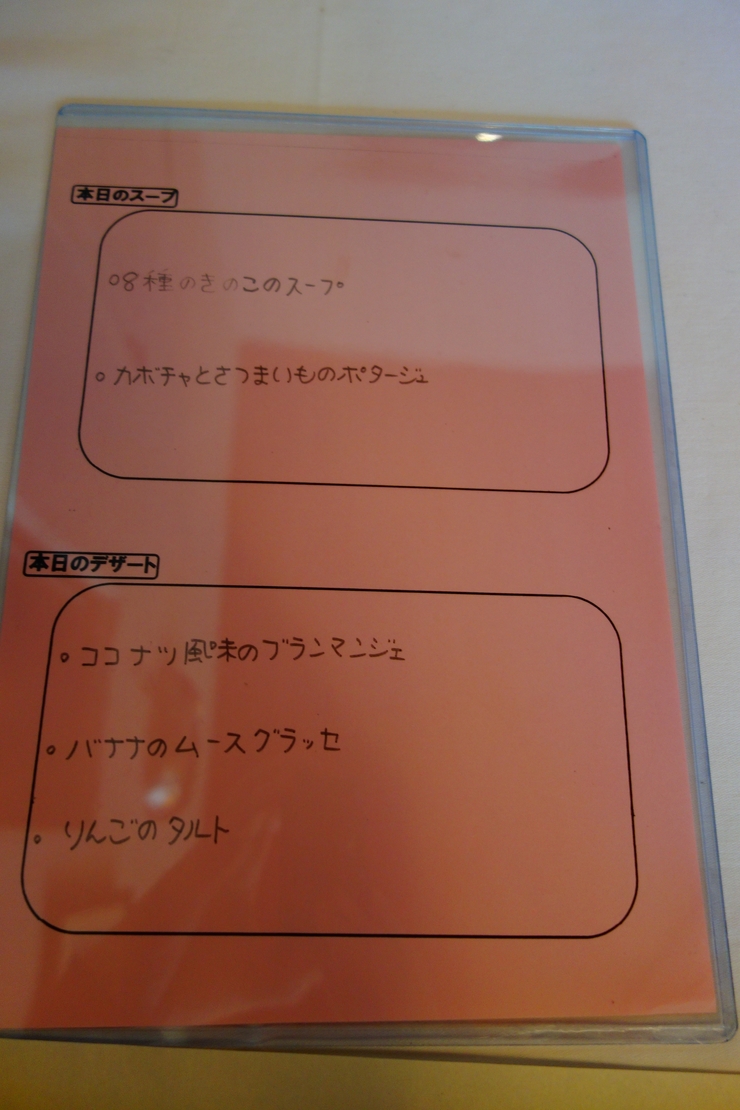 本日のスープ
○8種のきのこのスープ
○カボチャとさつまいものポタージュ
本日のデザート
○ココナツ風味のブランマンジェ
○バナナのムースグラッセ
○りんごのタルト